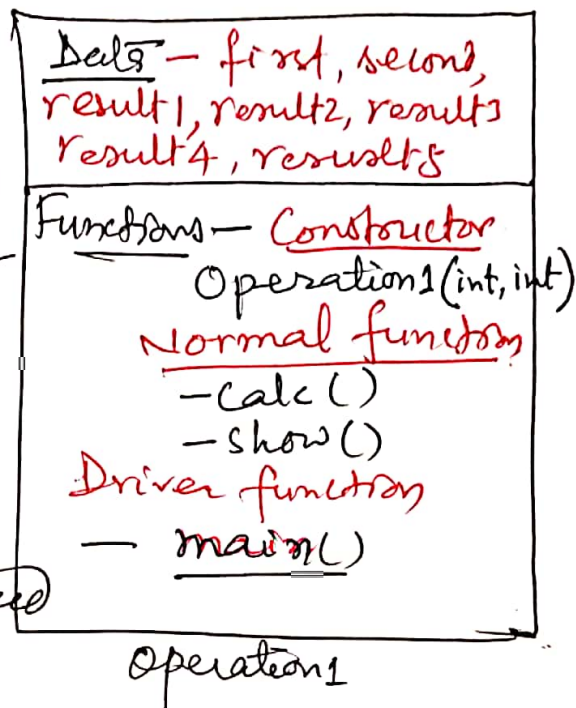 Data - first, second,
result1, result2, result3
result4, resuslt5
Functions - Constructor
Operation1(int, int)
Normal function
- calc()
- show()
Driver function
- main()
Operation1